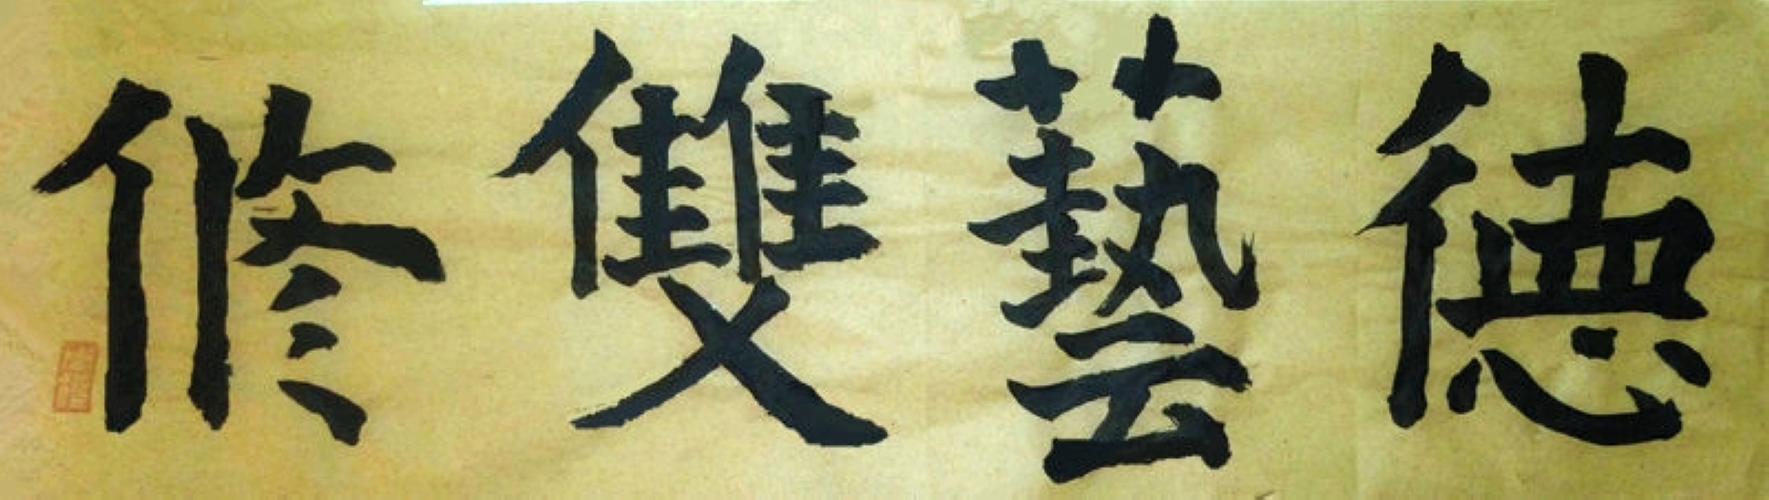 德藝雙修